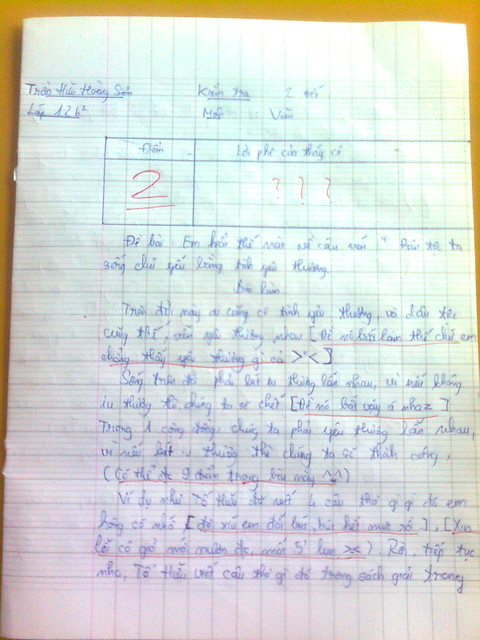 Trần Hữu Hoàng Sơn Kiểm tra 2 tiết
Lớp 12b2 Môn : Văn
Điểm Lời phê của thầy cô
2 ? ? ?
Đề bài Em hiểu thế nào về câu văn "
sống chủ yếu bằng tình yêu thương
Bài làm
Trên đời này ai cũng có tình yêu thương, và dân tộc
cũng thế, vẫn yêu thương nhau [Đề nó bắt làm thế chứ em
chẳng thấy yêu thương gì cả >"<]
Sống trên đời phải biết iu thương lẫn nhau, vì nếu không
iu thương thì chúng ta sẽ chết [Đề nó bắt vậy á nhaz]
Trong 1 cộng đồng chúng ta phải yêu thương lẫn nhau,
vì nếu biết iu thương thì chúng ta sẽ thành công,
(Có thể đc 9 điểm trong bài này ^^)
Ví dụ như Tố Hữu đã viết 4 câu thơ gì gì đó em
hông có nhớ [đợi xíu em đổi bút, bút hết mực rồi], [Xin
lỗi cô giờ mới mượn đc, mất 5' lun ><). Rồi, tiếp tục
nha, Tố Hữu viết câu thơ gì đó trong sách giải trong